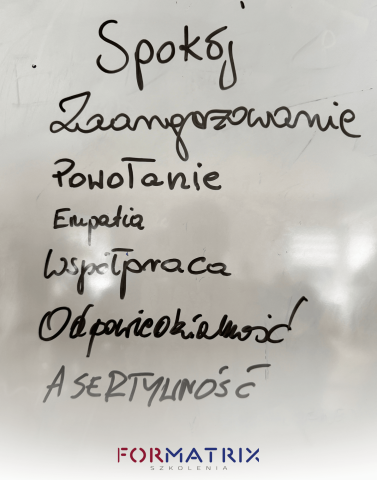 Spokój
Zaangozowanie
Powołanie
Empatia
Współpraca
Odpowiedzialność
ASERTYWNOŚĆ
FORMATRIX
SZKOLENIA